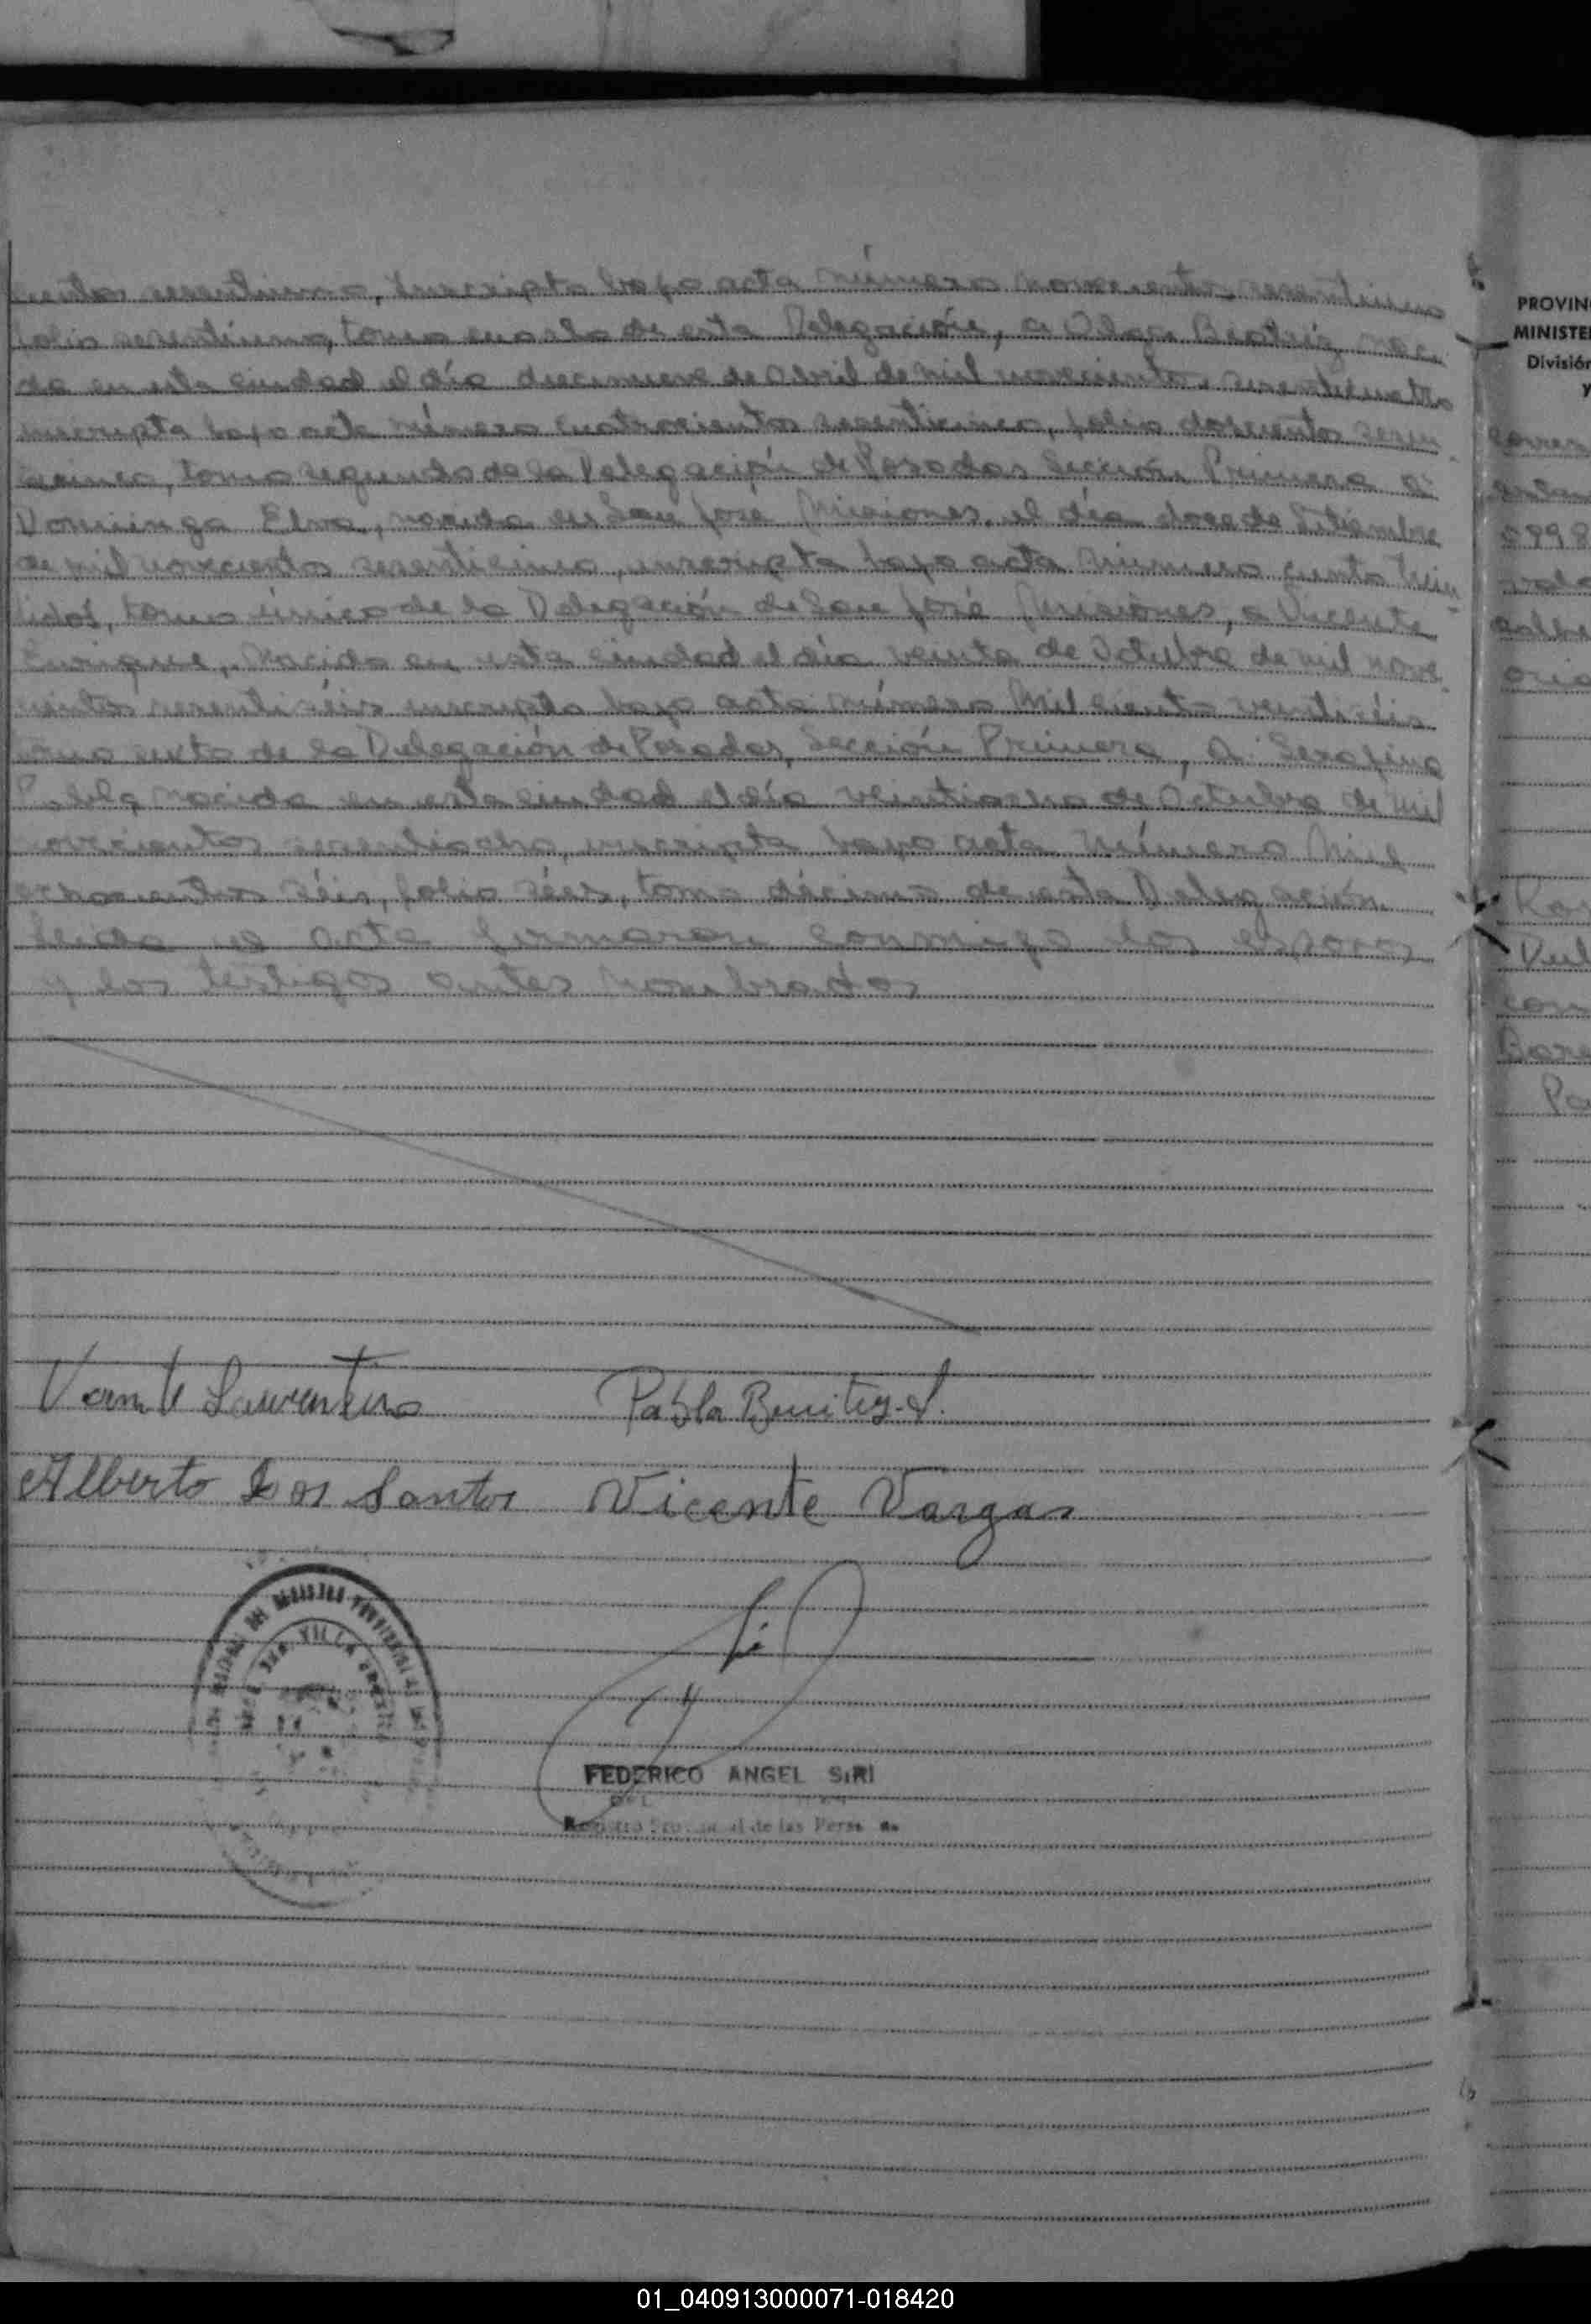 cientos sesentiuno, inscripta bajo acta número novecientos sesentiuno
folio sesentiuno, tomo de esta Delegación, a Olga Beatriz, naci
da en esta ciudad el día diecinueve de Abril de mil novecientos sesenticuatro
inscripta bajo acta número cuatrocientos sesenticinco, folio doscientos sesen
ticinco, tomo segundo de la Delegación de Posadas Sección Primera a
Dominga Elva, nacida en San José Misiones, el día doce de Setiembre
de mil novecientos sesenticinco, inscripta bajo acta número ciento trein
tidós, tomo único de la Delegación de San José Misiones, a Vicente
Enrique, Nacido en esta ciudad el día veinte de Octubre de mil nove
cientos sesentiséis inscripto bajo acta número Mil ciento veintiséis
tomo sexto de la Delegación de Posadas, Sección Primera, a Serafina
nacida en esta ciudad el día veintiocho de Octubre de mil
novecientos sesentiocho, inscripta bajo acta número Mil
ochocientos séis, folio séis, tomo décimo de esta Delegación
Leida el acta firmaron conmigo los esposos
y los testigos antes nombrados
Laurentino Pabla Benitez
Alberto Dos Santos Vicente Vargas
VILLA
FEDERICO ANGEL SIRI
Registro Provincial de las Personas
PROVIN
MINISTE
División
y
5998
Ros
Pa
01_040913000071-018420